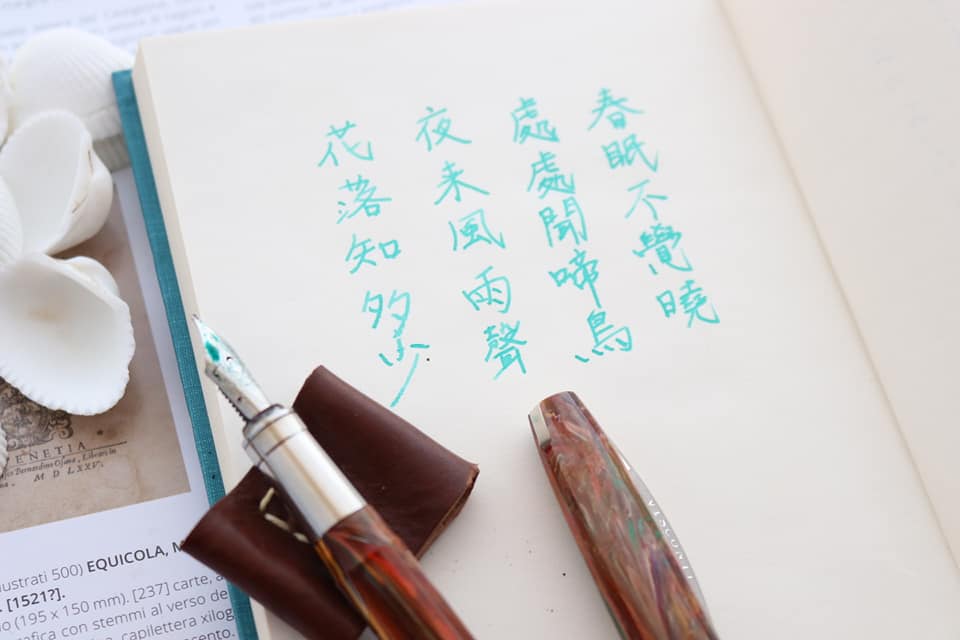 春眠不覺曉
處處聞啼鳥
夜来風雨聲
花落知多少
VISCONTI
VENETIA
M D LXXV.
ustrati 500) EQUICOLA, M
. [1521?].
o (195 x 150 mm). [237] carte, a
grafica con stemmi al verso de
capilettera xilog